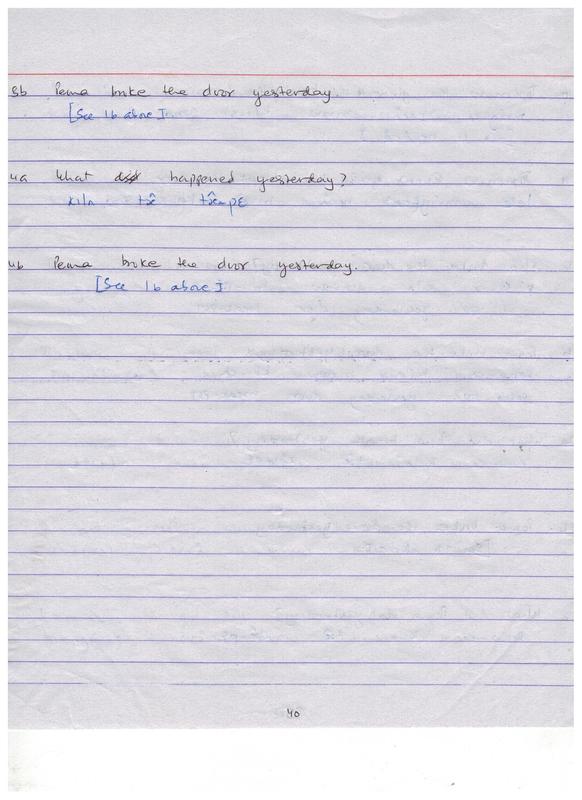 3b Pema broke the door yesterday
[See 1b above]
4a What happened yesterday?
4b Pema broke the door yesterday.
[See 1b above]
40